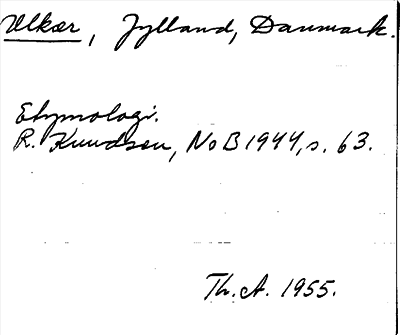 Ulkær, Jylland, Danmark.
Etymologi.
R. Knudsen, NoB 1944, s. 63.
Th. A. 1955.